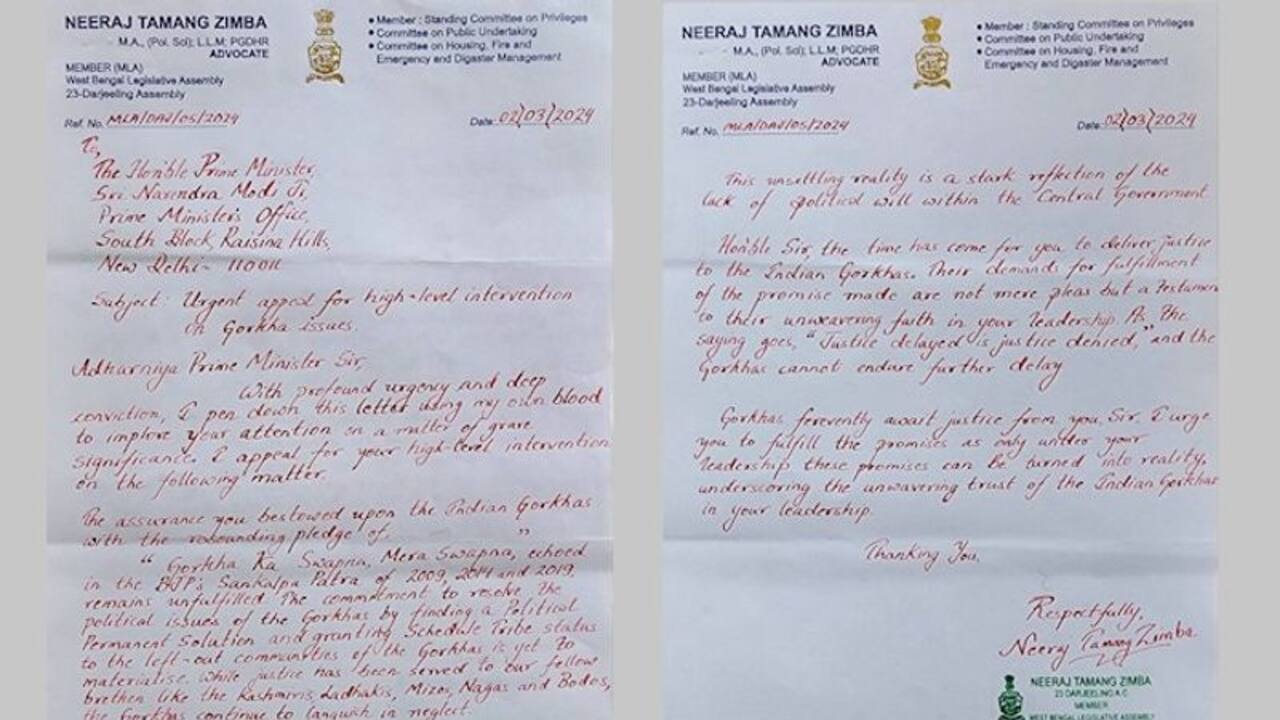 NEERAJ TAMANG ZIMBA
M.A., (Pol. Sci); L.L.M; PGDHR
ADVOCATE
MEMBER (MLA)
West Bengal Legislative Assembly
23-Darjeeling Assembly
• Member : Standing Committee on Privileges
• Committee on Public Undertaking
• Committee on Housing, Fire and
Emergency and Disaster Management
Ref. No. MLA/DAJ/05/2024
Date: 02/03/2024
To,
The Hon'ble Prime Minister,
Sri Narendra Modi Ji,
Prime Minister's Office,
South Block, Raisina Hills,
New Delhi - 110011
Subject: Urgent appeal for high-level intervention
on Gorkha issues.
Adharniya Prime Minister Sir,
With profound urgency and deep
conviction, I pen down this letter using my own blood
to implore your attention on a matter of grave
significance. I appeal for your high-level intervention
on the following matter.
The assurance you bestowed upon the Indian Gorkhas
with the resounding pledge of.
" Gorkha Ka Swapna, Mera Swapna, " echoed
in the BJP's Sankalpa Patra of 2009, 2014 and 2019,
remains unfulfilled. The commitment to resolve the
political issues of the Gorkhas by finding a Political
Permanent Solution and granting Schedule Tribe status
to the left-out communities of the Gorkhas is yet to
materialise. While justice has been served to our fellow
brethen like the Kashmiris, Ladhakis, Mizos, Nagas and Bodos,
the Gorkhas continue to languish in neglect.
NEERAJ TAMANG ZIMBA
M.A., (Pol. Sci); L.L.M; PGDHR
ADVOCATE
MEMBER (MLA)
West Bengal Legislative Assembly
23-Darjeeling Assembly
• Member : Standing Committee on Privileges
• Committee on Public Undertaking
• Committee on Housing, Fire and
Emergency and Disaster Management
Ref. No. MLA/DAJ/05/2024
Date: 02/03/2024
This unsettling reality is a stark reflection of the
lack of political will within the Central Government.
Hon'ble Sir, the time has come for you to deliver justice
to the Indian Gorkhas. Their demands for fulfillment
of the promise made are not mere pleas but a Testament
to their unweavering faith in your leadership. As the
saying goes, " Justice delayed is justice denied," and the
Gorkhas cannot endure further delay
Gorkhas ferevently await justice from you, Sir. I urge
you to fulfill the promises as only under your
leadership these promises can be turned into reality,
underscoring the unwavering trust of the Indian Gorkhas
in your leadership.
Thanking You.
Respectfully,
Neeraj Tamang Zimba
NEERAJ TAMANG ZIMBA
23 DARJEELING A.C.
MEMBER
WEST BENGAL LEGISLATIVE ASSEMBLY